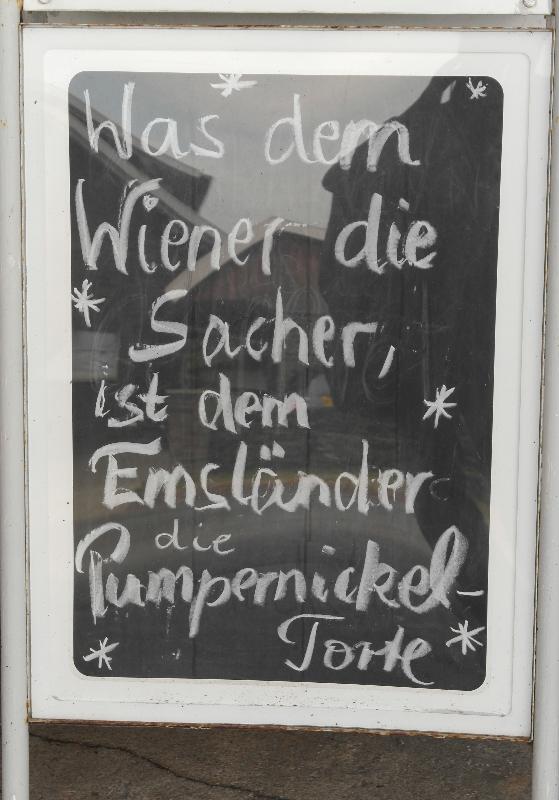 Was dem
Wiener die
Sacher,
ist dem
Emsländer
die
Pumpernickel-
Torte